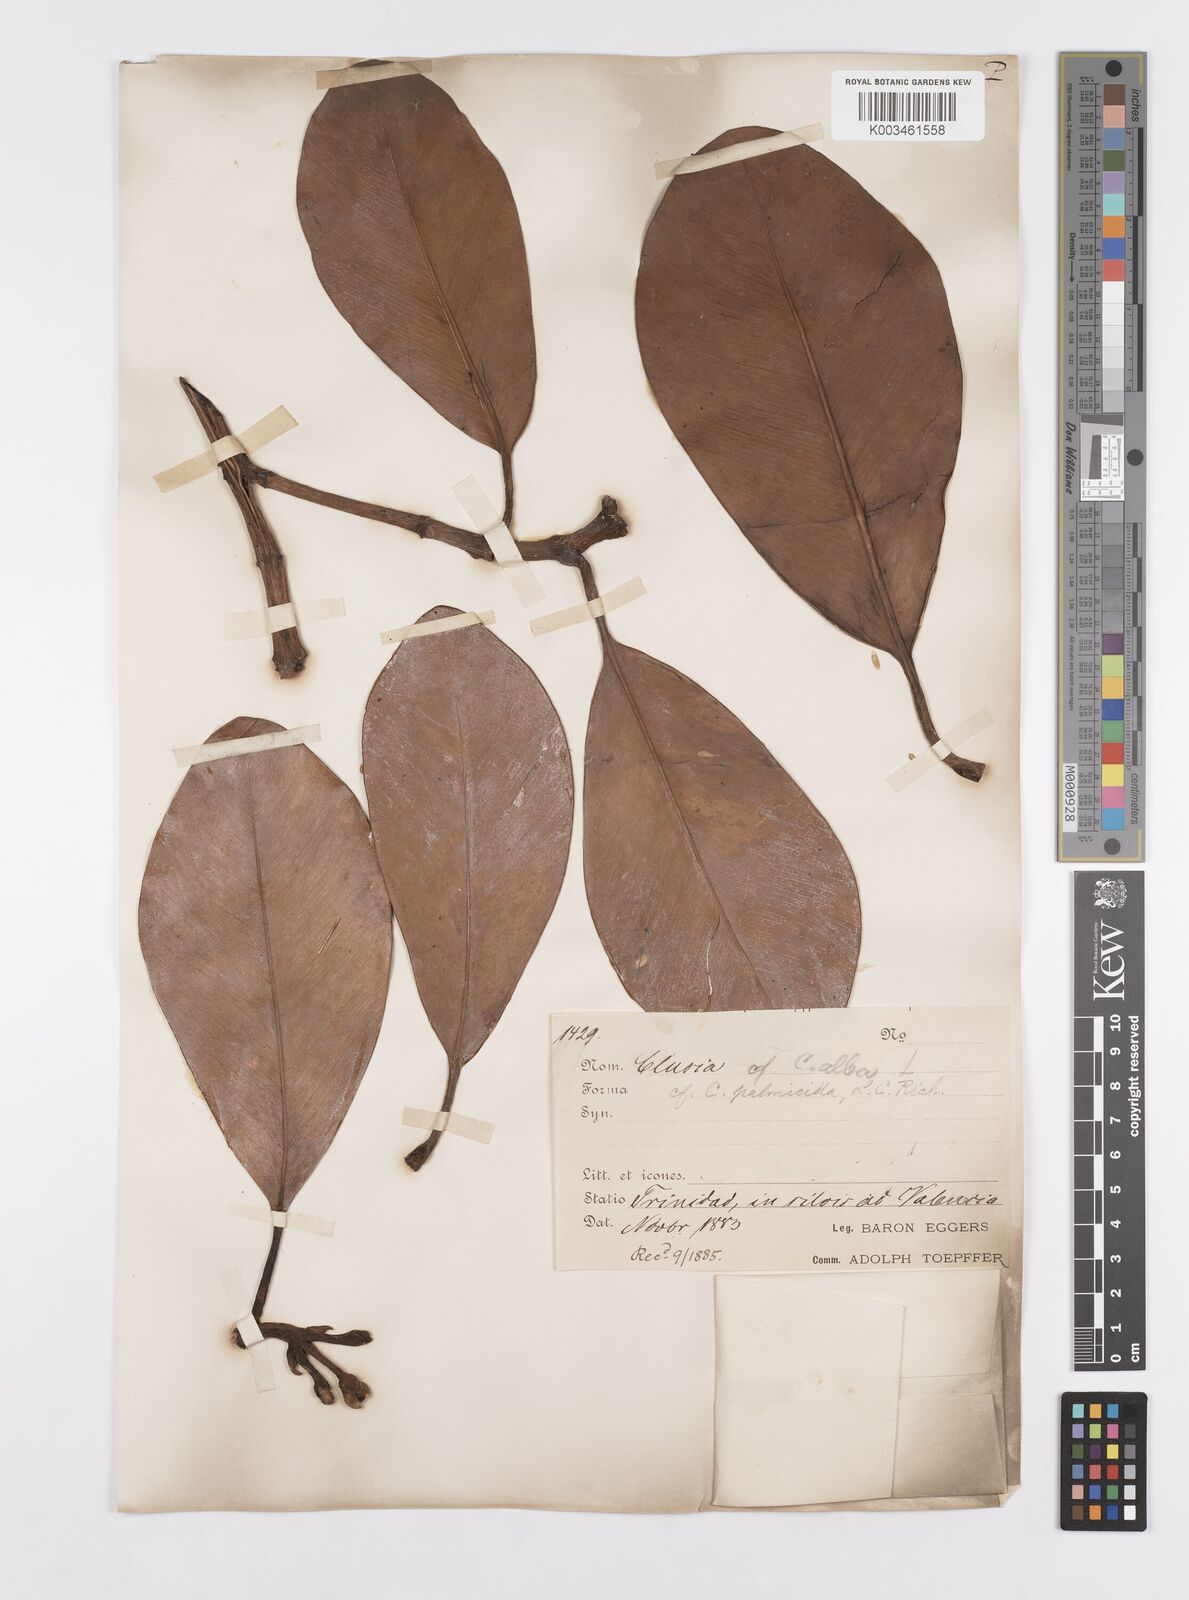 P
ROYAL BOTANIC GARDENS KEW
K003461558
1429. No
Nom. Clusia cf C. alba L
Forma cf. C. palmicida, L. C. Rich.
Syn.
Litt. et icones.
Statio Trinidad, in silvis ad Valencia
Dat. Novbr. 1883 Leg. BARON EGGERS
Recd. 9/1885. Comm. ADOLPH TOEPFFER
inches
Density
Don Williams
M000928
centimeters
Kew
Royal Botanic Gardens
copyright reserved
0 1 2 3 4 5 6 7 8 9 10
cm